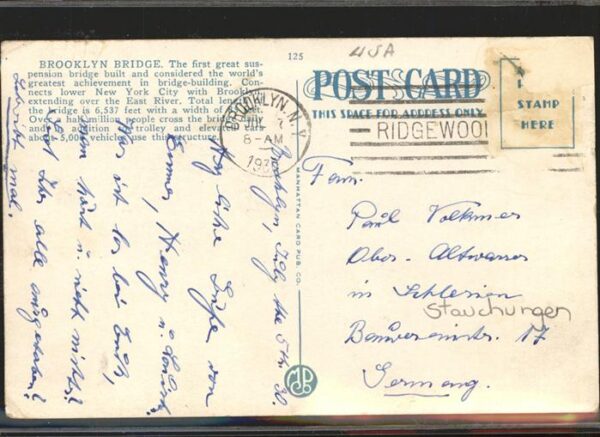 BROOKLYN BRIDGE. The first great sus-
pension bridge built and considered the world's
greatest achievement in bridge-building. Con-
nects lower New York City with Brooklyn
extending over the East River. Total length of
the bridge is 6,537 feet with a width of feet.
Over million people cross the bridge daily
and in addition to trolley and elevated cars
about 5,000 vehicles use this structure.
125
USA
POST CARD
THIS SPACE FOR ADDRESS ONLY
STAMP
HERE
BROOKLYN, N.Y.
8-AM
RIDGEWOOD
MANHATTAN CARD PUB. CO.
Brooklyn, July the 5th
Herzliche Grüße von
Emma, Henry u.
Was ist los bei Euch,
man hört u. sieht nichts?
Seid Ihr alle ausgestorben?
Schreibt mal.
Fam.
Paul Volkmer
Ober-Altwasser
in Schlesien
Stauchungen
17
Germany.